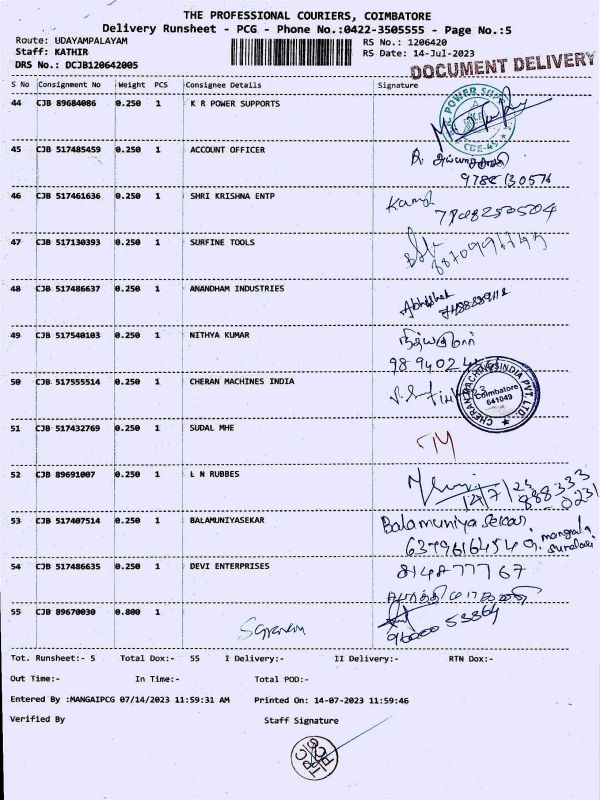 THE PROFESSIONAL COURIERS, COIMBATORE
Delivery Runsheet - PCG - Phone No.:0422-3505555 - Page No.:5
Route: UDAYAMPALAYAM RS No.: 1206420
Staff: KATHIR RS Date: 14-Jul-2023
DRS No.: DCJB120642005
DOCUMENT DELIVERY
S No Consignment No Weight PCS Consignee Details Signature
44 CJB 89684086 0.250 1 K R POWER SUPPORTS
CBE-49
45 CJB 517485459 0.250 1 ACCOUNT OFFICER
46 CJB 517461636 0.250 1 SHRI KRISHNA ENTP
47 CJB 517130393 0.250 1 SURFINE TOOLS
48 CJB 517486637 0.250 1 ANANDHAM INDUSTRIES
Abhishek
49 CJB 517540103 0.250 1 NITHYA KUMAR
50 CJB 517555514 0.250 1 CHERAN MACHINES INDIA
CHERAN MACHINES INDIA PVT. LTD.
Coimbatore
641049
51 CJB 517432769 0.250 1 SUDAL MHE
52 CJB 89691007 0.250 1 L N RUBBES
14/7/23
53 CJB 517407514 0.250 1 BALAMUNIYASEKAR
Balamuniya Sekar
6379616454
54 CJB 517486635 0.250 1 DEVI ENTERPRISES
55 CJB 89670030 0.800 1
Tot. Runsheet:- 5 Total Dox:- 55 I Delivery:- II Delivery:- RTN Dox:-
Out Time:- In Time:- Total POD:-
Entered By :MANGAIPCG 07/14/2023 11:59:31 AM Printed On: 14-07-2023 11:59:46
Verified By Staff Signature